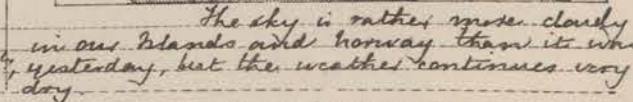 The sky is rather more cloudy
in our Islands and Norway than it was
yesterday, but the weather continues very
dry.